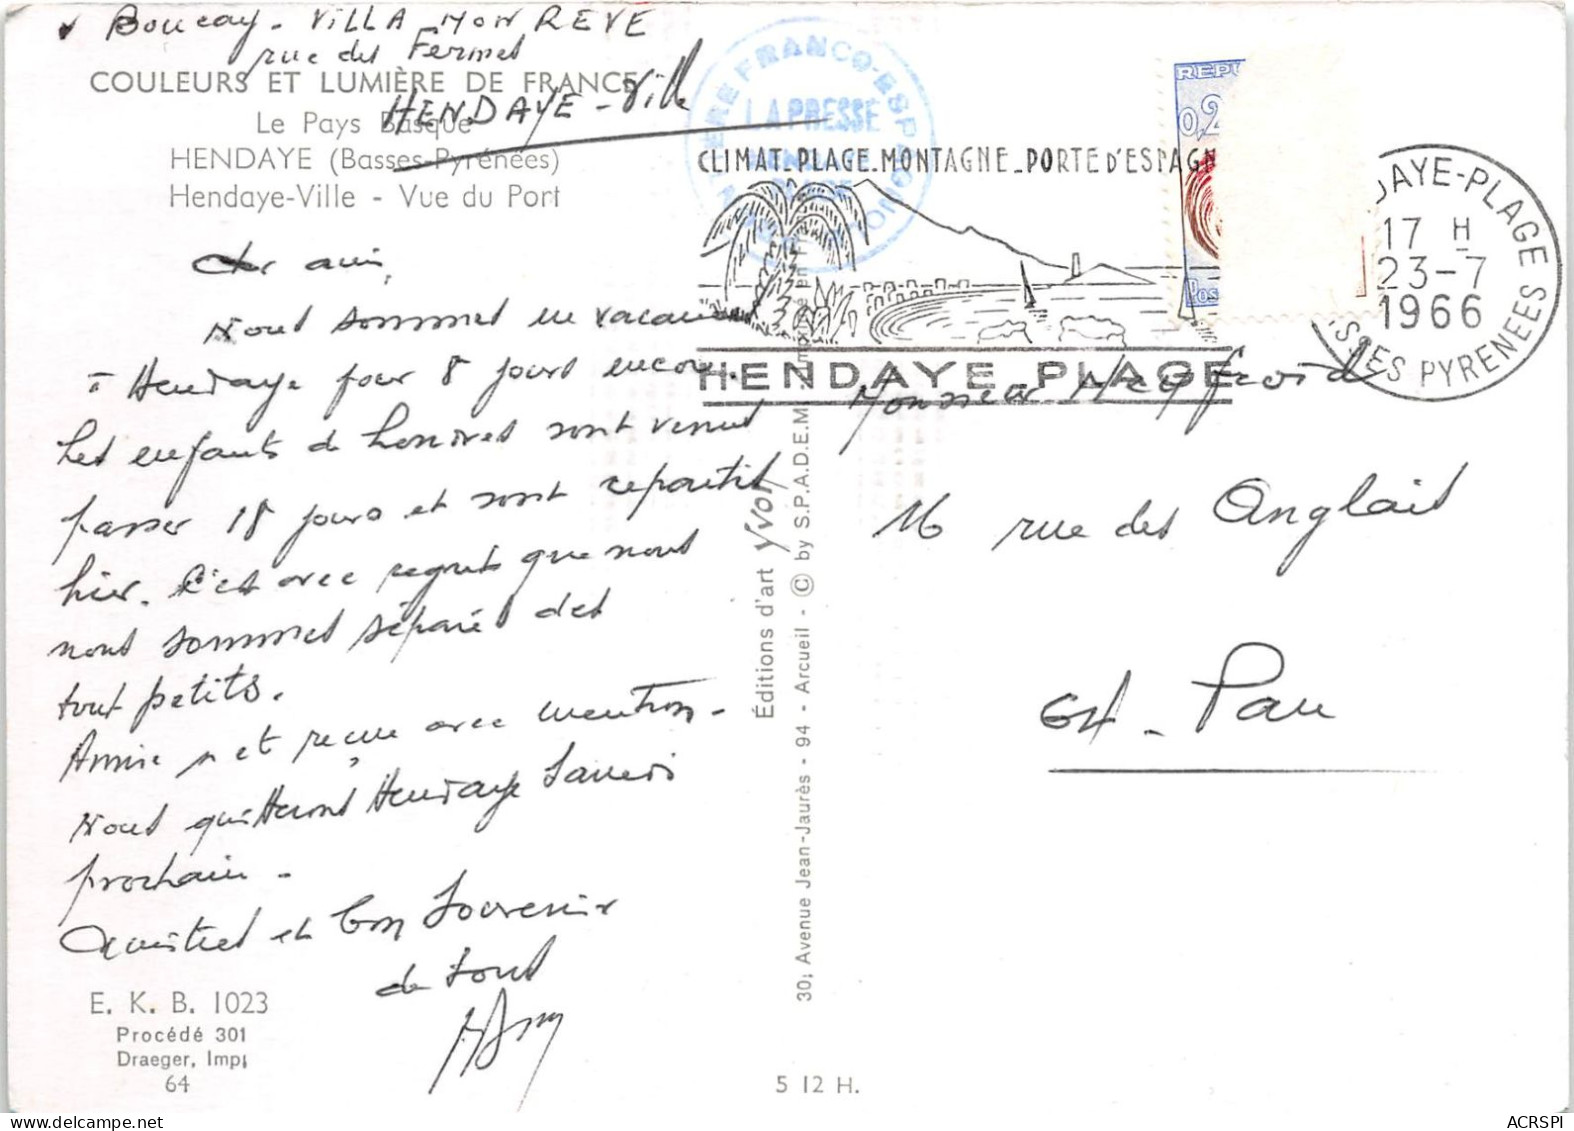 Boucay - VILLA MON REVE
rue des Fermes
HENDAYE - Ville
COULEURS ET LUMIÈRE DE FRANCE
Le Pays Basque
HENDAYE (Basses-Pyrénées)
Hendaye-Ville - Vue du Port
Cher ami,
Nous sommes en vacances
à Hendaye pour 8 jours encore.
Les enfants de sont venus
passer 18 jours et sont repartis
hier. C'est avec regrets que nous
nous sommes séparés des
tout petits.
Annie est reçue avec mention.
Nous quitterons Hendaye Samedi
prochain.
Amitiés et bon Souvenir
de tous
E. K. B. 1023
Procédé 301
Draeger, Imp.
64
Éditions d'art Yvon
30, Avenue Jean-Jaurès - 94 - Arcueil - © by S.P.A.D.E.M. - Imprimé en
5 12 H.
FRANCO-ESPAGNOL
LA PRESSE
CLIMAT_PLAGE_MONTAGNE_PORTE D'ESPAGN
HENDAYE PLAGE
REPU
0,2
POS
DAYE-PLAGE
17 H
23-7
1966
SSES PYRENEES
Monsieur
16 rue des Anglais
64 - Pau
ACRSPI